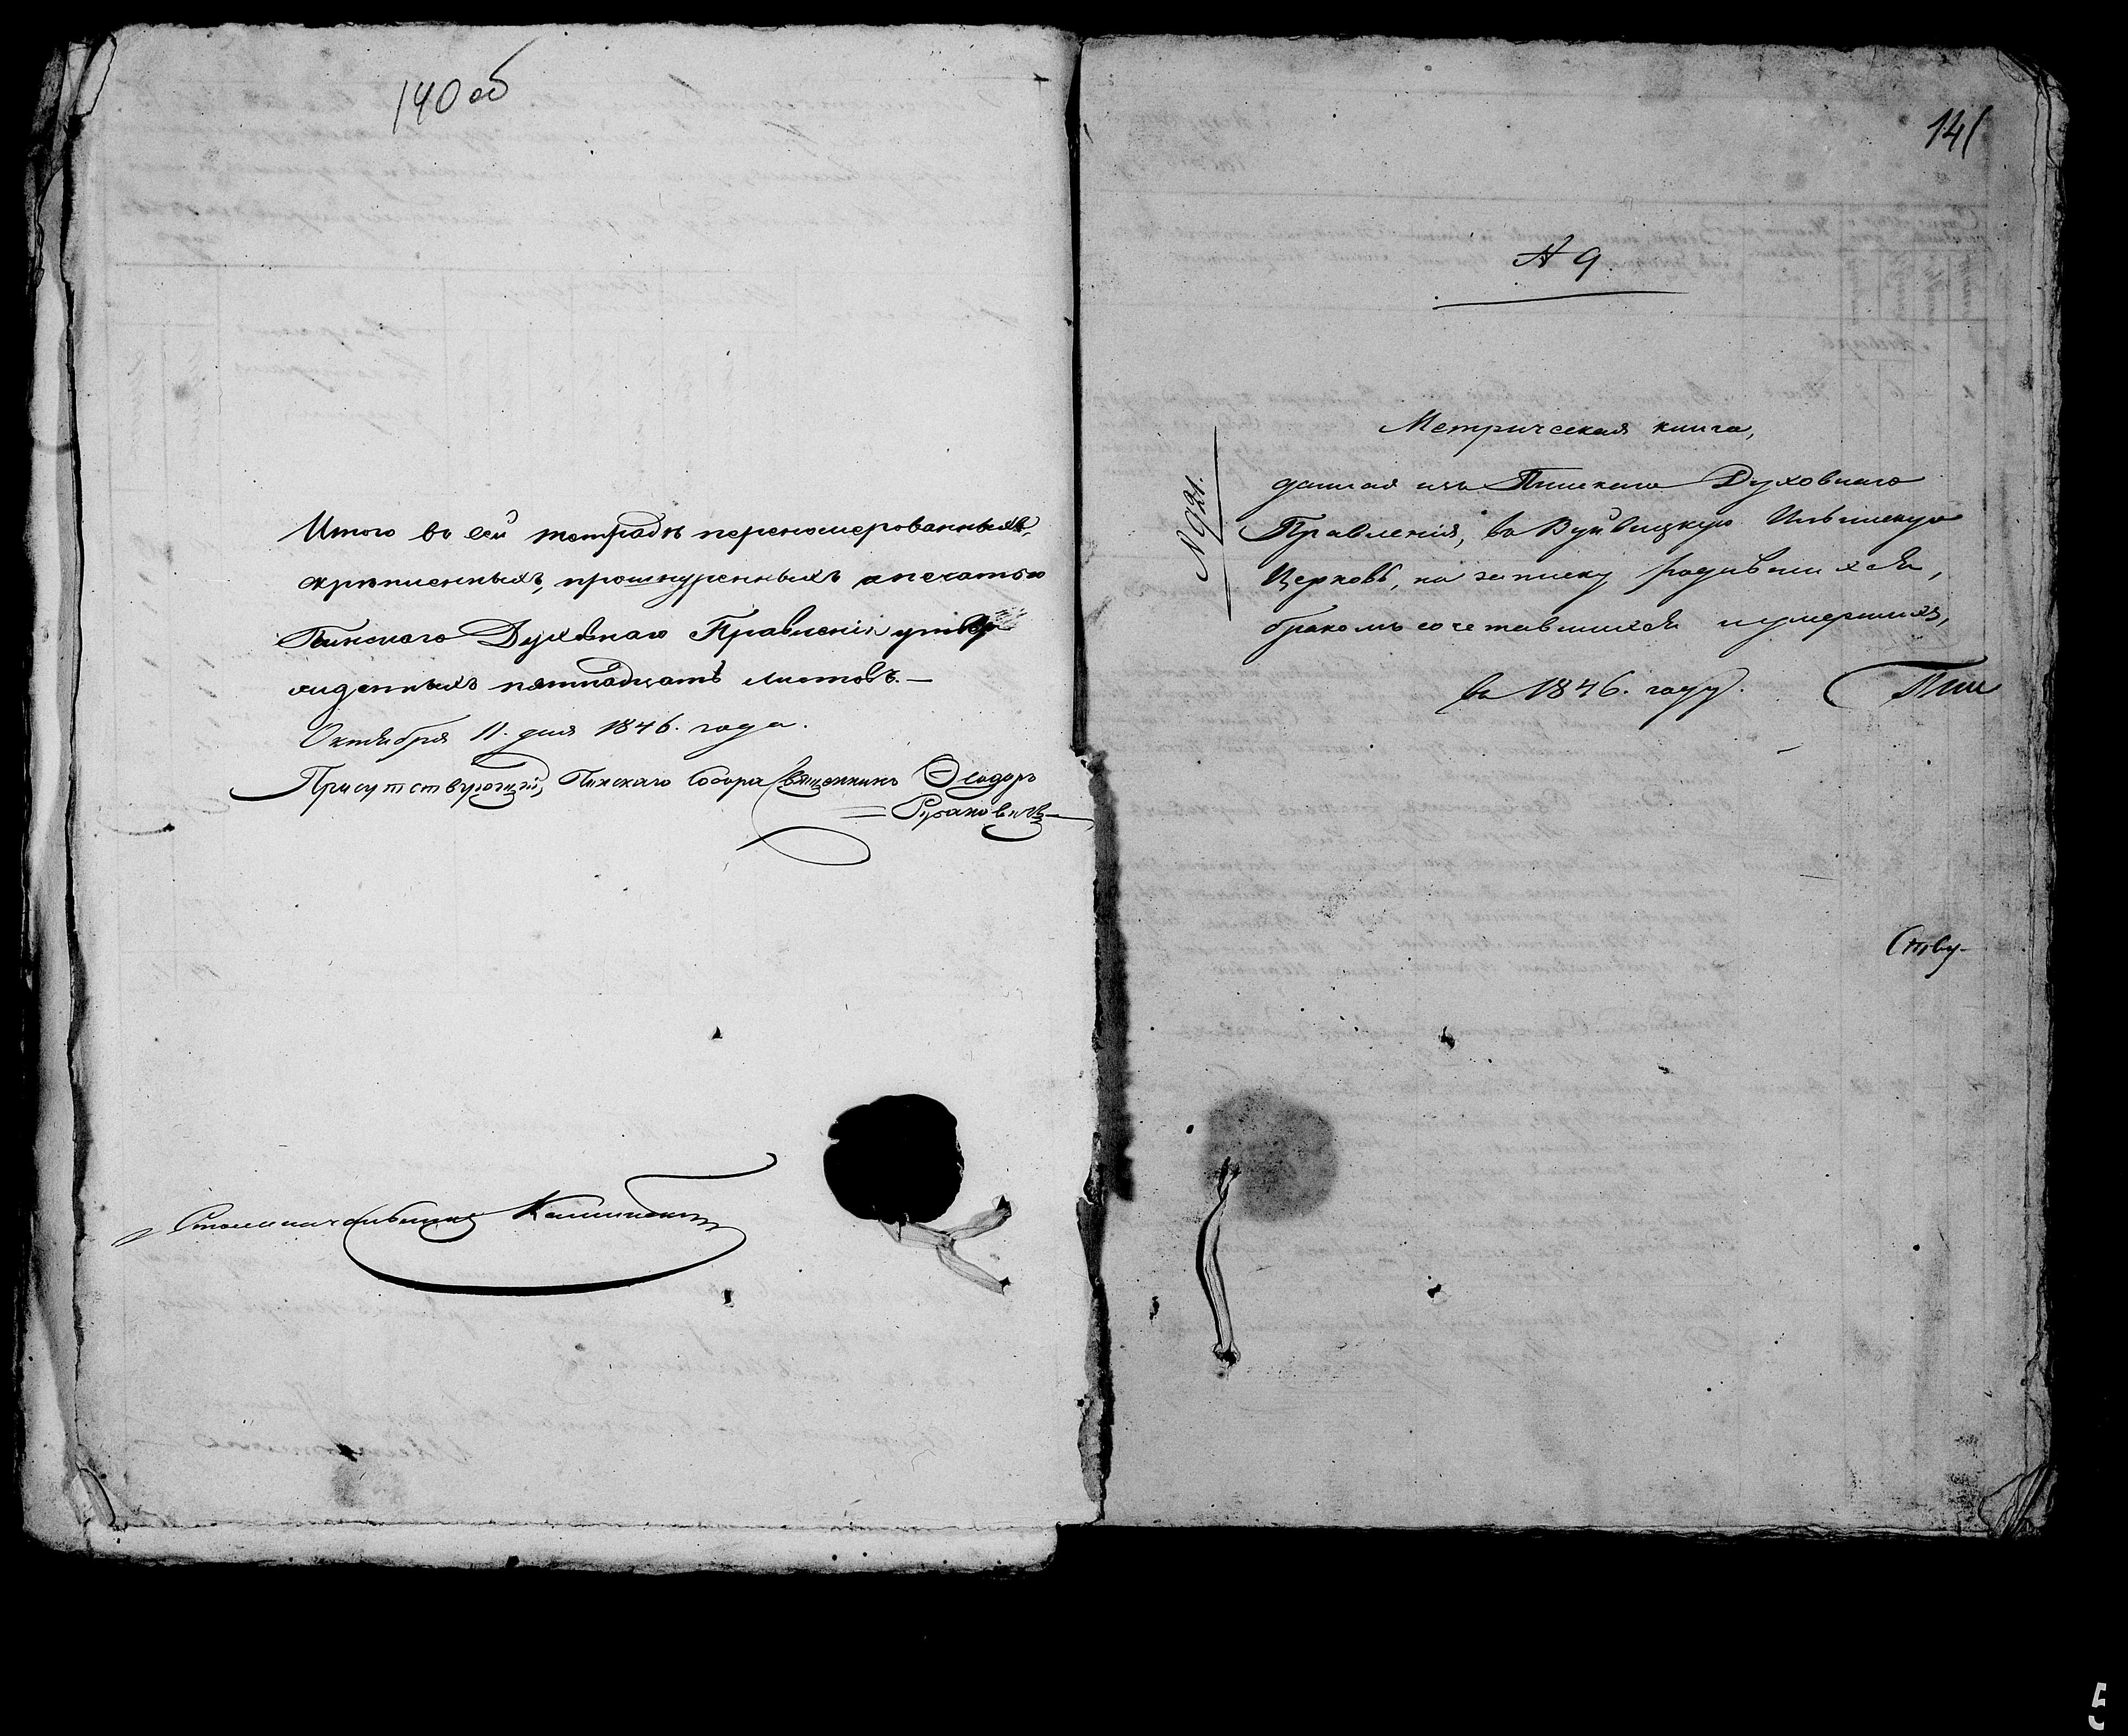 140 об
Итого въ сей тетрадѣ переномерованныхъ,
скрѣпленныхъ, прошнуренныхъ и печатью
Пинскаго Духовнаго Правленія утвер
жденныхъ пятнадцать листовъ. —
Октября 11. дня 1846. года.
Присутствующій, Пинскаго Собора Священникъ Ѳеодоръ
Столоначальникъ
141
№ 9.
№ 921.
Метрическая книга,
данная изъ Пинскаго Духовнаго
Правленія, въ Вуйвицкую Ильинскую
Церковь, на записку родившихся,
бракомъ сочетавшихся и умершихъ,
въ 1846. году.
Пин
Ству-
5